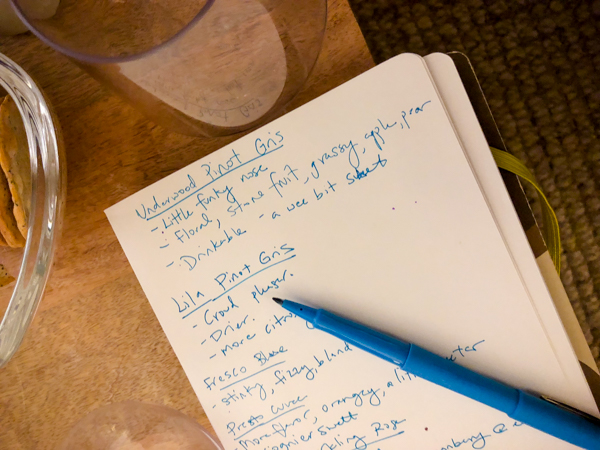 Underwood Pinot Gris
- Little funky nose
- Floral, stone fruit, grassy, apple, pear
- Drinkable - a wee bit sweet
Lila Pinot Gris
- Crowd pleaser.
- Drier.
- more
Fresco
- stinky, fizzy, bland
Presto Cuvee
more flavor, orangey, a
sweet
Rose